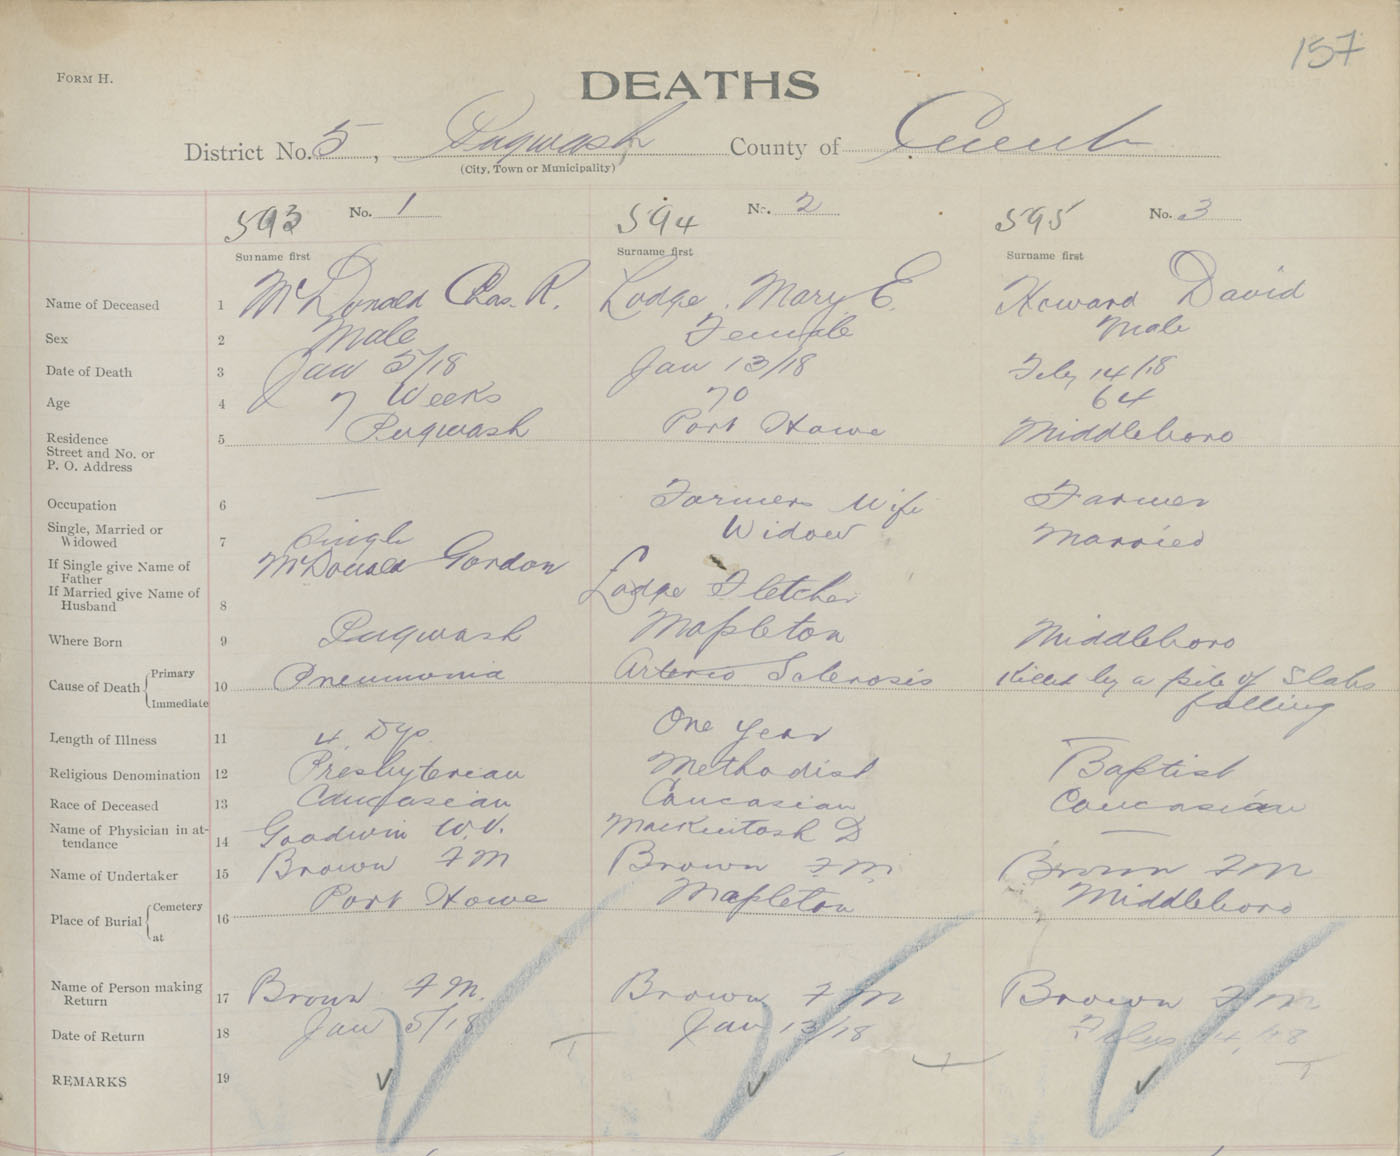 157
FORM H.
DEATHS
District No. 5, Pugwash County of Cumb
(City, Town or Municipality)
593 No. 1 594 No. 2 595 No. 3
Surname first Surname first Surname first
Name of Deceased 1 McDonald Chas. R. Lodge, Mary E. Howard David
Sex 2 Male Female Male
Date of Death 3 Jan 5/18 Jan 13/18 Feby 14/18
Age 4 7 Weeks 70 64
Residence 5 Pugwash Port Howe Middleboro
Street and No. or
P. O. Address
Occupation 6 — Farmers Wife Farmer
Single, Married or
Widowed 7 Single Widow Married
If Single give Name of
Father McDonald Gordon
If Married give Name of
Husband 8 Lodge Fletcher
Where Born 9 Pugwash Mapleton Middleboro
Cause of Death Primary
Immediate 10 Pneumonia Arterio Sclerosis Killed by a pile of Slabs
falling
Length of Illness 11 4 Dys One Year —
Religious Denomination 12 Presbyterian Methodist Baptist
Race of Deceased 13 Caucasian Caucasian Caucasian
Name of Physician in at-
tendance 14 Goodwin W.V. Mackintosh D —
Name of Undertaker 15 Brown F M Brown F M. Brown F M
Place of Burial Cemetery
at 16 Port Howe Mapleton Middleboro
Name of Person making
Return 17 Brown F M. Brown F M Brown F M.
Date of Return 18 Jan 5/18 Jan 13/18 Feby 14/18
REMARKS 19